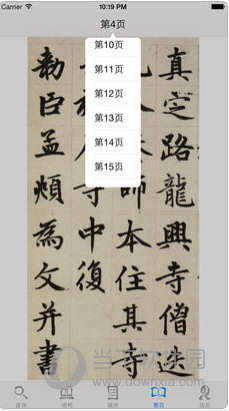 Carrier 10:19 PM
第4页
第10页
第11页
第12页
第13页
第14页
第15页
真定路龍興寺僧迭
師本住其寺
寺中復
勅臣孟頫為文并書
整页